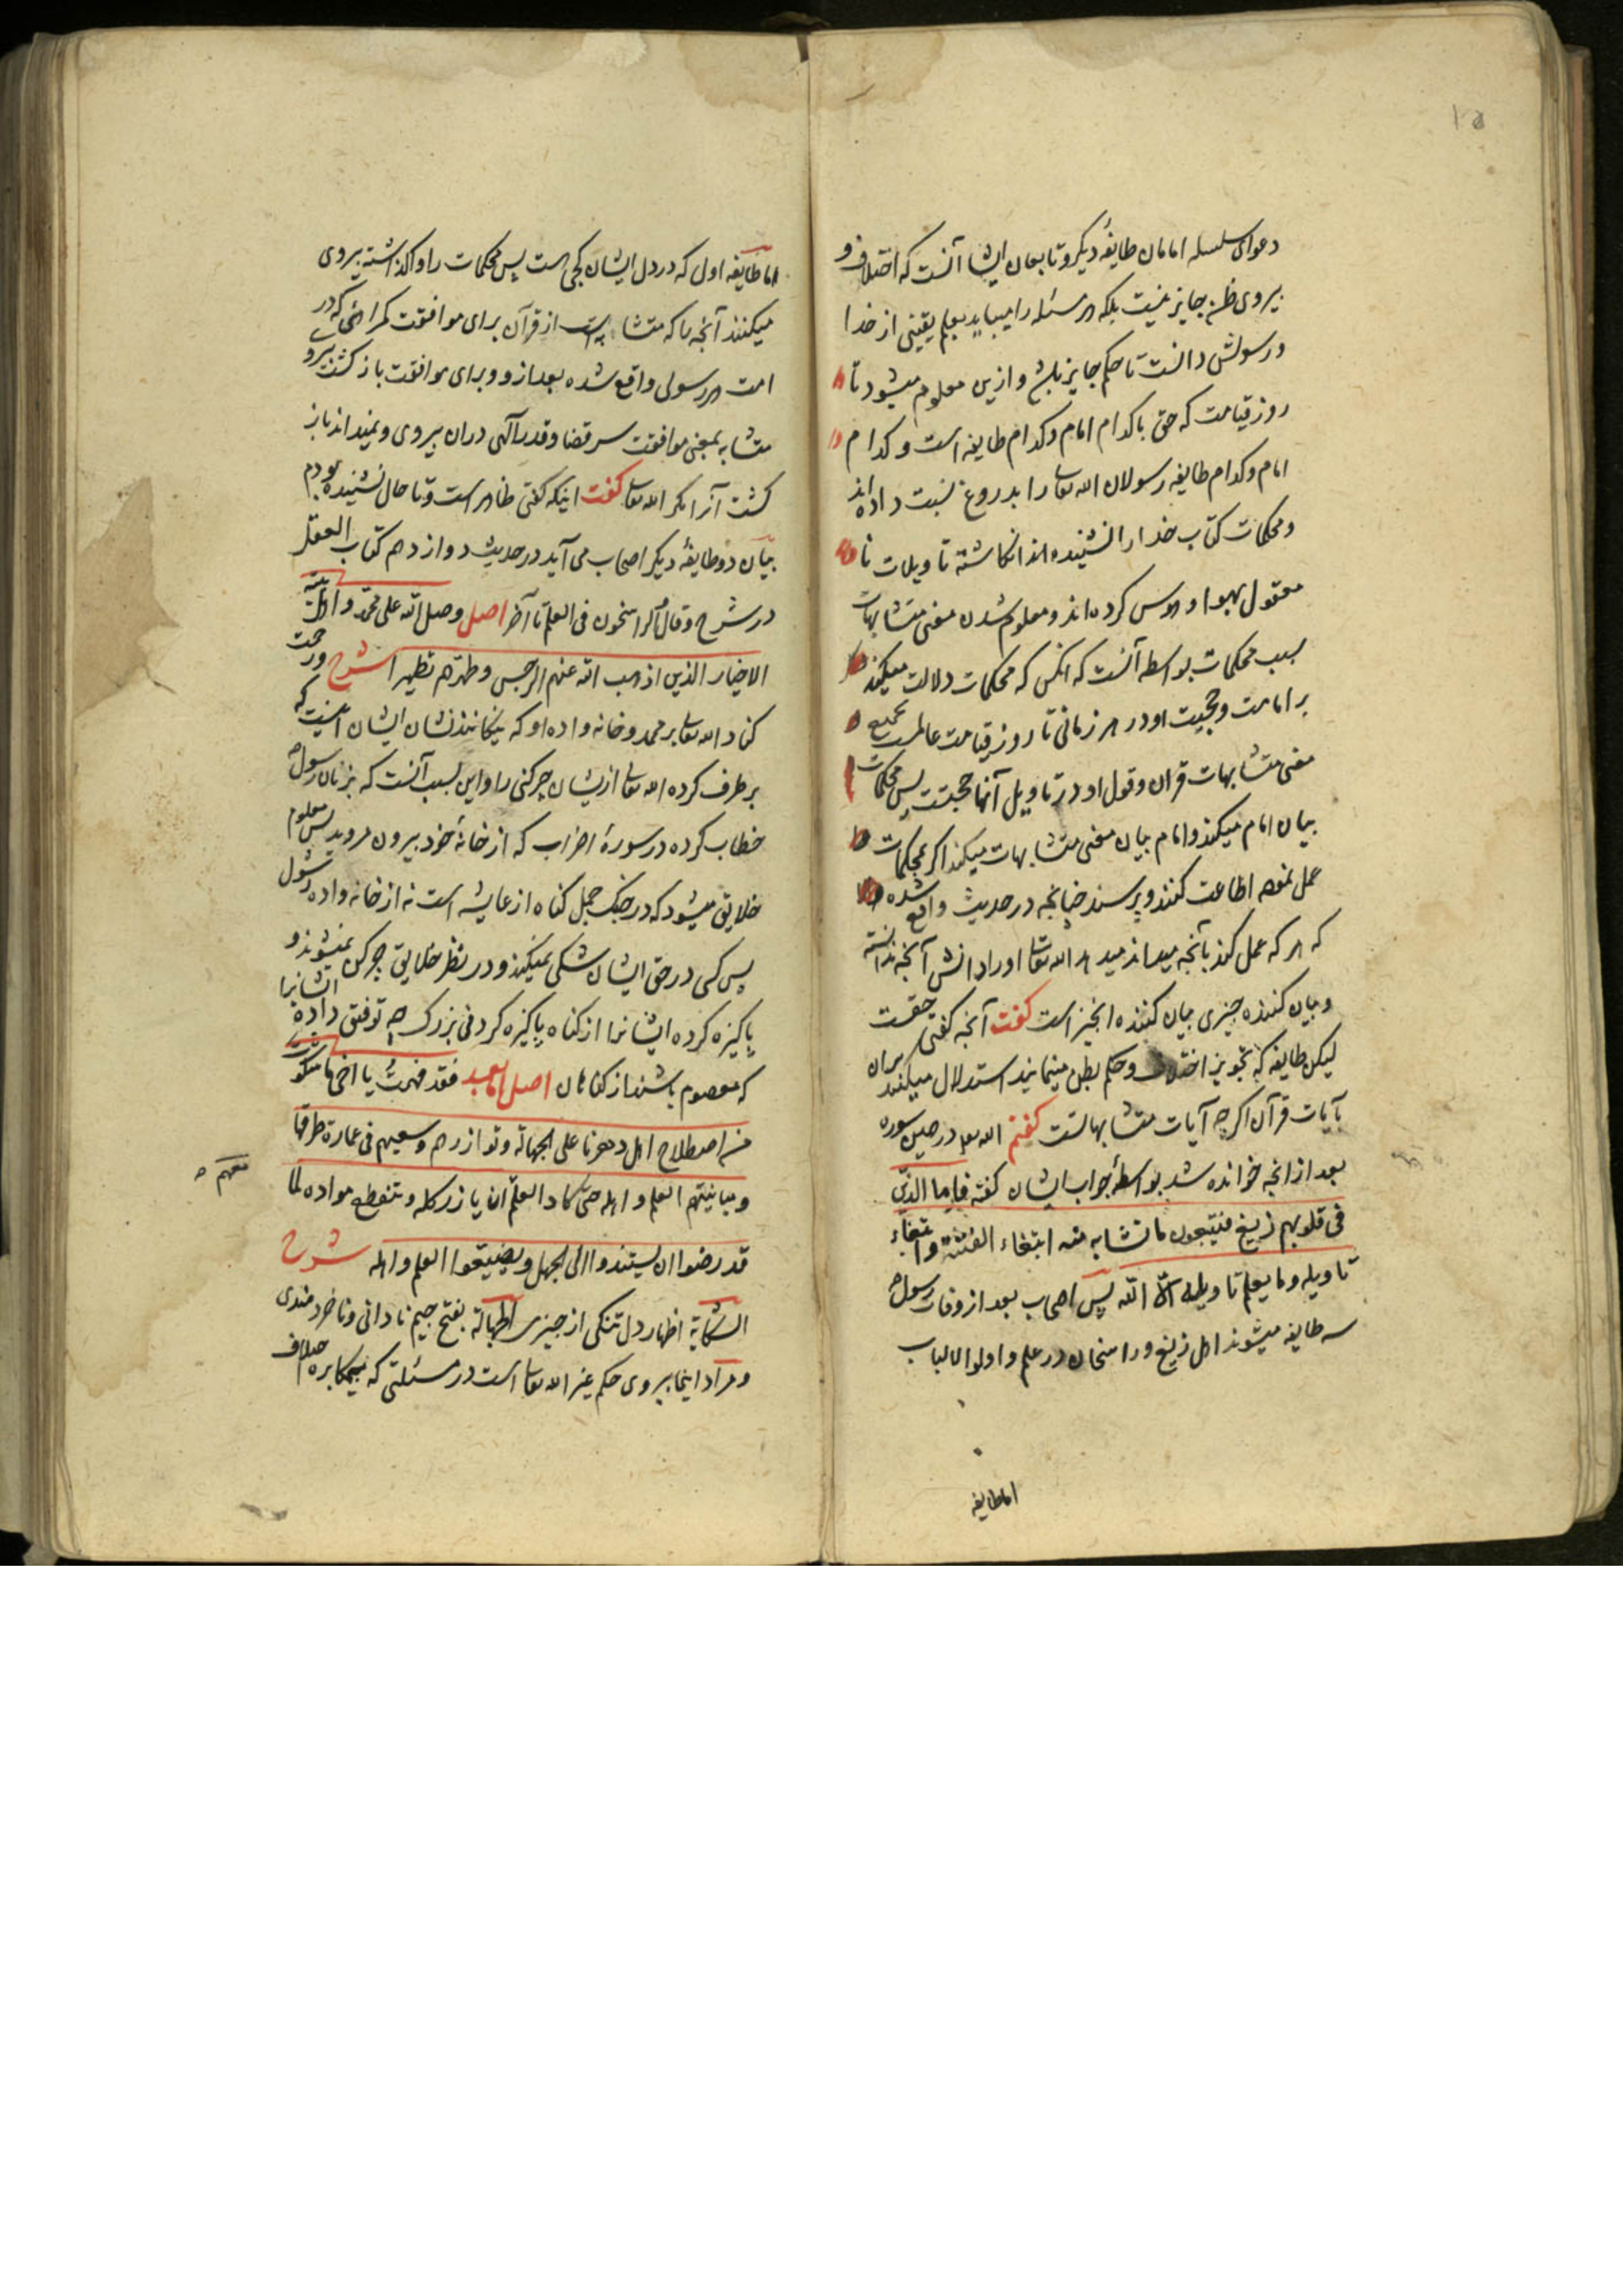 ۱۵
دعوای سلسله امامان طایفهٔ دیگر و تابعان ایشا آنست که اختلاف و
پیروی ظن جایز نیست بلکه هر مسئله را میباید بعلم یقینی از خدا
و رسولش دانست تا حکم جایز باشد و ازین معلوم میشود تا
روز قیامت که حق با کدام امام و کدام طایفه است و کدام
امام و کدام طایفه رسولان الله تعالی را بدروغ نسبت داده اند
و محکمات کتاب خدا را نشنیده انکاشته تاویلات نا
معقول بهوا و هوس کرده‌اند و معلوم شدن معنی متشابهات
بسبب محکمات بواسطه آنست که آنکس که محکمات دلالت میکند
بر امامت و حجیت او در هر زمانی تا روز قیامت عالمست بجمیع
معنی متشابهات قرآن و قول او در تاویل آنها حجتست پس محکمات
بیان امام میکند و امام بیان معنی متشابهات میکند اگر بمحکمات
عمل نموده اطاعت کنند و پرسند چنانچه در حدیث واقع شده
که هر که عمل کند بآنچه میداند میدهد الله تعالی او را دانش آنچه ندانسته
و بیان کننده چیزی بیان کننده آنچیز است گفت آنچه گفتی حقست
لیکن طایفه که تجویز اختلاف و حکم بظن مینمایند استدلال میکنند بران
بآیات قرآن اگرچه آیات متشابهاتست گفتم الله تعالی در همین سوره
بعد از آنچه خوانده شد بواسطهٔ جواب ایشان گفته فاما الذین
فی قلوبهم زیغ فیتبعون ما تشابه منه ابتغاء الفتنة وابتغاء
تاویله وما یعلم تاویله الا الله پس اصحاب بعد از وفات رسول
سه طایفه میشوند اهل زیغ و راسخان در علم و اولوا الالباب
اما طایفه
اما طایفه اول که در دل ایشان کجی است پس محکمات را واگذاشته پیروی
میکنند آنچه را که متشابه است از قرآن برای موافقت گمراهی که در
امت هر رسولی واقع شده بعد از و و برای موافقت بازگشت
متشابه بمعنی موافقت سر قضا و قدر الهی دران پیروی و نمیداند باز
گشت آنرا مگر الله تعالی گفت اینکه گفتی ظاهر است و تا حال نشنیده بودم
بیان دو طایفهٔ دیگر اصحاب می آید در حدیث دوازدهم کتاب العقل
در شرح و قال الراسخون فی العلم تا آخر اصل وصلی الله علی محمد و اهل بیته
الاخیار الذین اذهب الله عنهم الرجس و طهرهم تطهیرا شرح و رحمت
کناد الله تعالی بر محمد و خانه واده او که نیکانند نشان ایشان اینست که
برطرف کرده الله تعالی از ایشان چرکنی را و این بسبب آنست که بزنان رسول
خطاب کرده در سورهٔ احزاب که از خانهٔ خود بیرون مروید پس معلوم
خلایق میشود که در جنک جمل کناه از عایشه است نه از خانه واده رسول
پس کسی در حق ایشان شکی نمیکند و در نظر خلایق چرکن نمیشوند و
پاکیزه کرده ایشانرا از کناه پاکیزه کردنی بزرک چه توفیق داده ایشانرا
که معصوم باشند از کناهان اصل اما بعد فقد فهمت یا اخی ما شکوت
من اصطلاح اهل دهرنا علی الجهالة و توازرهم و سعیهم فی عمارة طرقها
و مباینتهم العلم و اهله حتی کاد العلم ان یأزر کله و تنقطع مواده لما
قد رضوا ان یستندوا الی الجهل و یضیعوا العلم و اهله شرح
الشکایة اظهار دل تنکی از چیزی الجهالة بفتح جیم نادانی و ناخردمندی
و مراد اینجا پیروی حکم غیر الله تعالی است در مسئلتی که بیمکابره خلاف
معهم